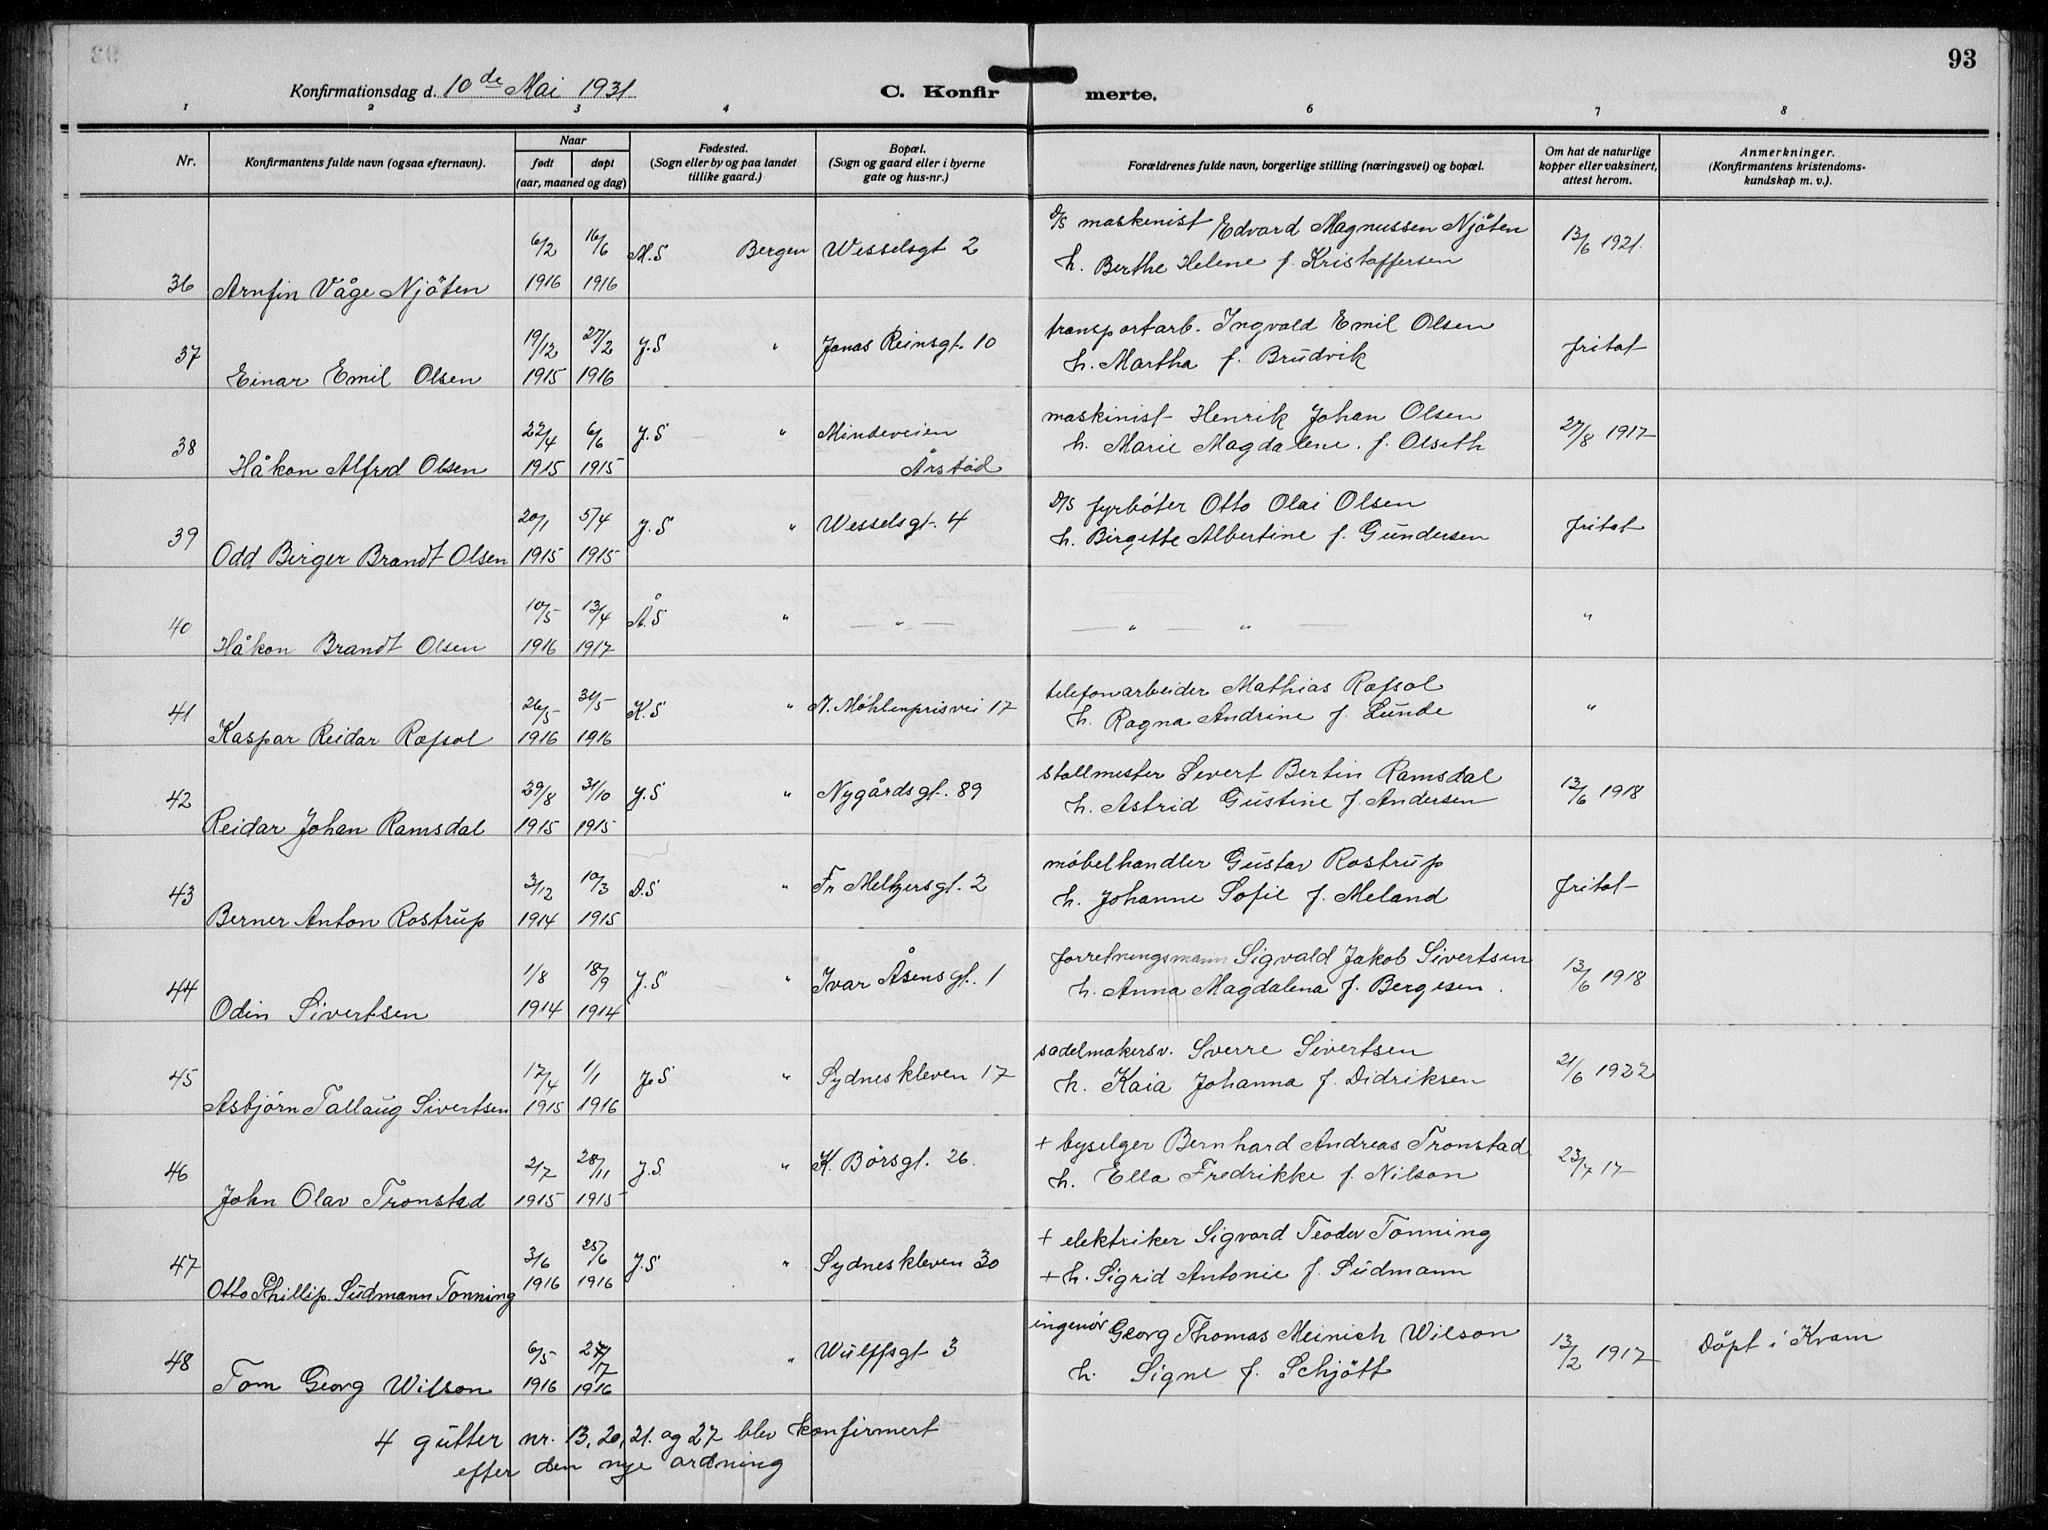 93
Konfirmationsdag d. 10de Mai 1931
C. Konfirmerte.
1 2 3 4 6 7 8
Nr.
Konfirmantens fulde navn (ogsaa efternavn).
Naar
født døpt
(aar, maaned og dag)
Fødested.
(Sogn eller by og paa landet
tillike gaard.)
Bopæl.
(Sogn og gaard eller i byerne
gate og hus-nr.)
Forældrenes fulde navn, borgerlige stilling (næringsvei) og bopæl.
Om hat de naturlige
kopper eller vaksinert,
attest herom.
Anmerkninger.
(Konfirmantens kristendoms-
kundskap m. v.).
6/2 16/6 M.S Bergen Wesselsgt 2 D/S maskinist Edvard Magnussen Njöten 13/6 1921.
36 Arnfin Våge Njöten 1916 1916 h. Berthe Helene f. Kristoffersen
37 19/12 27/2 J.S " Jonas Reinsgt. 10 transportarb. Ingvald Emil Olsen fritat
Einar Emil Olsen 1915 1916 h. Martha f. Brudvik
38 22/4 6/6 J.S " Mindeveien maskinist Henrik Johan Olsen 27/8 1917
Håkon Alfred Olsen 1915 1915 Årstad h. Marie Magdalene. f. Olseth
39 20/1 5/4 J.S " Wesselsgt. 4 D/S fyrbøter Otto Olai Olsen fritat
Odd Birger Brandt Olsen 1915 1915 h. Birgitte Albertine f. Gundersen
40 10/5 13/4 Å.S " — " — — " " — "
Håkon Brandt Olsen 1916 1917
41 26/5 31/5 K.S " N. Møhlenprisvei 17 telefonarbeider Mathias Ræfsol "
Kaspar Reidar Ræfsol 1916 1916 h. Ragna Andrine f. Lunde
42 29/8 31/10 J.S " Nygårdsgt. 89 stallmester Severt Bertin Ramsdal 13/6 1918
Reidar Johan Ramsdal 1915 1915 h. Astrid Gustine f. Andersen
43 3/12 10/3 D.S " Fr Meltzersgt. 2 møbelhandler Gustav Rostrup fritat
Berner Anton Rostrup 1914 1915 h. Johanne Sofie f. Meland
44 1/8 18/9 J.S " Ivar Åsensgt. 1 forretningsmann Sigvald Jakob Sivertsen 13/6 1918
Odin Sivertsen 1914 1914 h. Anna Magdalena f. Bergesen.
45 17/4 1/1 J.S " Sydneskleven 17 sadelmakersv. Sverre Sivertsen 21/6 1922
Asbjørn Tallaug Sivertsen 1915 1916 h. Kaia Johanna f. Didriksen
46 2/7 28/11 J.S " K. Børsgt. 26. + byselger Bernhard Andreas Tronstad 23/4 17
John Olav Tronstad 1915 1915 h. Ella Fredrikke f. Nilson
47 3/6 25/6 J.S " Sydneskleven 30 + elektriker Sigvard Teodor Tonning
Otto Phillip. Südmann Tonning 1916 1916 + h. Sigrid Antonie f. Südmann
48 6/5 " Wulffsgt 3 ingeniør Georg Thomas Meinich Wilson 13/2 1917 Döpt i Kvam
Tom Georg Wilson 1916 1916 h. Signe f. Schjött
4 gutter nr. 13, 20, 21. og 27 blev konfirmert
efter den nye ordning